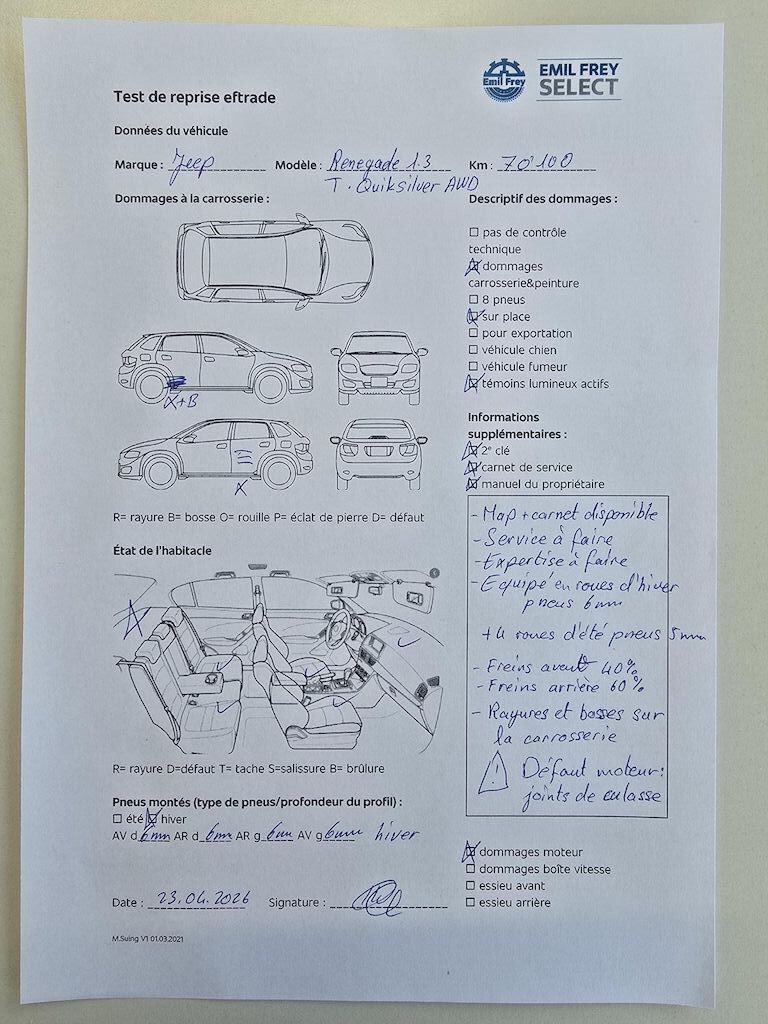 Emil Frey
EMIL FREY
SELECT
Test de reprise eftrade
Données du véhicule
Marque : Jeep Modèle : Renegade 1.3 Km : 70'100
T. Quiksilver AWD
Dommages à la carrosserie :
X+B
X
R= rayure B= bosse O= rouille P= éclat de pierre D= défaut
État de l'habitacle
R= rayure D=défaut T= tache S=salissure B= brûlure
Pneus montés (type de pneus/profondeur du profil) :
☐ été ☒ hiver
AV d 6mm AR d 6mm AR g 6mm AV g 6mm hiver
Date : 23.04.2026 Signature :
M.Suing V1 01.03.2021
Descriptif des dommages :
☐ pas de contrôle
technique
☒ dommages
carrosserie&peinture
☐ 8 pneus
☒ sur place
☐ pour exportation
☐ véhicule chien
☐ véhicule fumeur
☒ témoins lumineux actifs
Informations
supplémentaires :
☒ 2ᵉ clé
☒ carnet de service
☒ manuel du propriétaire
- Map + carnet disponible
- Service à faire
- Expertise à faire
- Equipé en roues d'hiver
pneus 6mm
+ 4 roues d'été pneus 5mm
- Freins avant 40%
- Freins arrière 60%
- Rayures et bosses sur
la carrosserie
⚠ Défaut moteur:
joints de culasse
☒ dommages moteur
☐ dommages boîte vitesse
☐ essieu avant
☐ essieu arrière